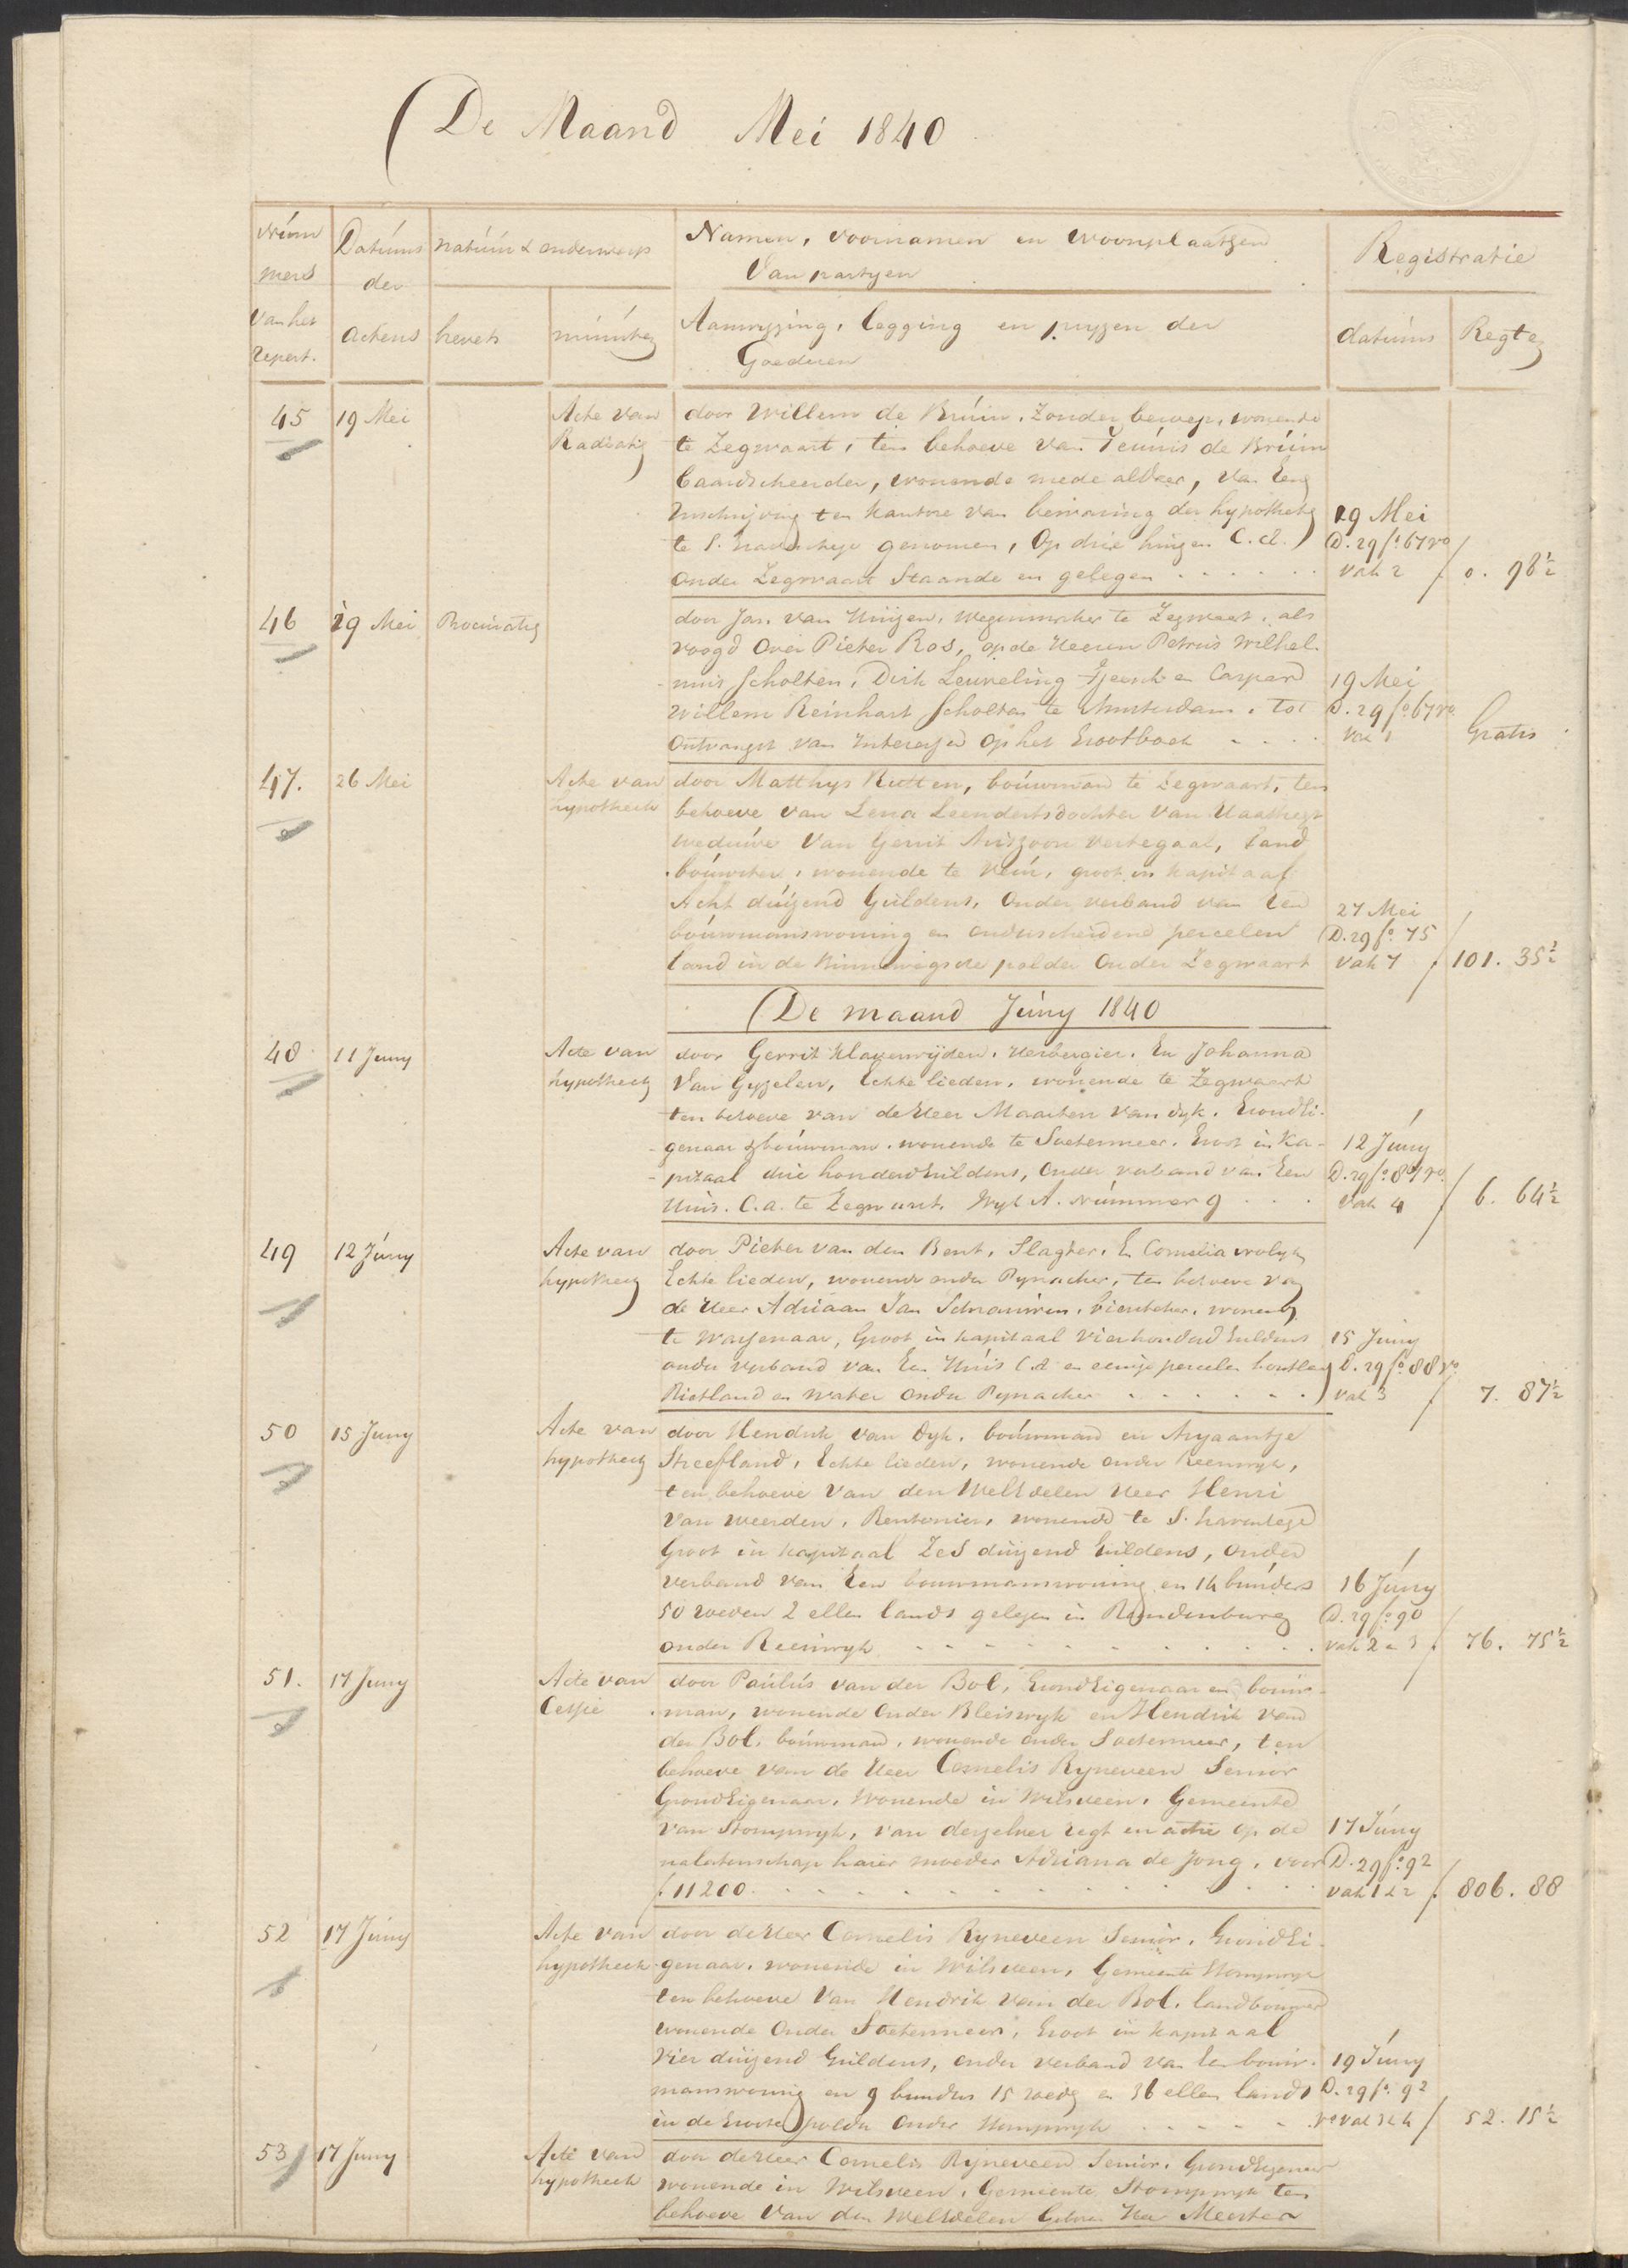 De Maand Mei 1840
Datums natuur & onderwerp Namen, voornamen en woonplaatsen Registratie
mers der Van partyen
van het actens brevets minuten Aanwyzing, legging en pryzen der datums Regte
repert. Goederen
45 19 Mei Acte van door Willem de Bruin, Zonder beroep, wonende
Radiatie te Zegwaart, ten behoeve van Teunis de Bruin
baardscheerder, wonende mede aldaar, van Eene
Inschrijving ten kantore van bewaring der hypotheken 19 Mei
te S. Gravenhage genomen, Op drie huizen C.A. D. 29 fo. 67 ro
Onder Zegwaart Staande en gelegen . . . . . . vak 2 f 0. 98½
46 19 Mei Procuratie door Jan van Huijen, Wagenmaker te Zegwaart, als
voogd Over Pieter Ros, op de Heeren Petrus Wilhel-
mus Scholten, Dirk Leuveling Tjeenk en Casper 19 Mei
Willem Reinhart Scholten te Amsterdam, tot D. 29 fo. 67 ro
Ontvangst van Interessen Op het Grootboek . . . . vak 1 Gratis
47. 26 Mei Acte van door Matthys Rutten, bouwman te Zegwaart, ten
hypotheek behoeve van Lena Leendertsdochter van
weduwe Van Gerrit Ariszoon Vertegaal, Land
bouwster, wonende te groot in kapitaal
Acht duizend Guldens, Onder verband van Een 27 Mei
bouwmanswoning en onderscheidene percelen D. 29 fo. 75
Land in de Binnenwegsche polder Onder Zegwaart vak 7 f 101. 35½
De maand Juny 1840
48 11 Juny Acte van door Gerrit Klavenwijden, Herbergier, En Johanna
hypotheek Van Gyzelen, Echte lieden, wonende te Zegwaart
ten behoeve van de Heer Maarten van Dyk, GrondEi-
genaar & bouwman, wonende te Soetermeer, Groot in Ka- 12 Juny
-pitaal drie honderd Guldens, Onder verband van Een D. 29 fo. 87 ro
Huis C.a. te Zegwaart, Wyk A. Nummer 9 . . . vak 4 f 6. 64½
49 12 Juny Acte van door Pieter van den Bent, Slagter, En Cornelia
hypotheek Echte lieden, wonende onder Pynacker, ten behoeve van
de Heer Adriaan Jan wonende
te Wassenaar, Groot in kapitaal Vierhonderd Guldens 15 Juny
onder verband van Een Huis C.A. en eenige perceelen D. 29 fo. 88 ro
Rietland en Water Onder Pynacker . . . . . . . vak 3 f 7. 87½
50 15 Juny Acte van door Hendrik van Dyk, bouwman en Aryaantje
hypotheek Streefland, Echte lieden, wonende onder Reeuwyk,
ten behoeve Van den WelEdelen Heer Henri
Van Weerden, Rentenier, wonende te S. Gravenhage
Groot in kapitaal Zes duizend Guldens, Onder
verband van Een bouwmanswoning en 14 bunders 16 Juny
50 roeden 2 ellen lands gelegen in Randenburg D. 29 fo. 90
onder Reeuwyk . . . . . . . . . . . . . vak 2 & 3 f 76. 75½
51. 17 Juny Acte van door Paulus van der Bol, GrondEigenaar en bouw-
Cessie man, wonende Onder Bleiswyk en Hendrik van
der Bol, bouwman, wonende onder Soetermeer, ten
behoeve van de Heer Cornelis Ryneveen Senior
GrondEigenaar, Wonende in Wilsveen, Gemeente
Van Stompwyk, van derzelver regt en actie op de 17 Juny
nalatenschap harer moeder Adriana de Jong, voor D. 29 fo. 92
f 11200 . . . . . . . . . . . . . vak 1 & 2 f 806. 88
52 17 Juny Acte van door de Heer Cornelis Ryneveen Senior, GrondEi-
hypotheek genaar, wonende in Wilsveen, Gemeente Stompwyk
ten behoeve Van Hendrik van der Bol, landbouwer
wonende Onder Soetermeer, Groot in kapitaal
Vier duizend Guldens, onder verband van Een bouw- 19 Juny
manswoning en 9 bunders 15 roeden en 36 ellen lands D. 29 fo. 92
in de Groote polder Onder Stompwyk . . . . . . vo vak 3 & 4 f 52. 15½
53 17 Juny Acte van door de Heer Cornelis Ryneveen Senior, GrondEigenaar
hypotheek wonende in Wilsveen, Gemeente Stompwyk ten
behoeve Van den WelEdelen Geboren Heer Meester